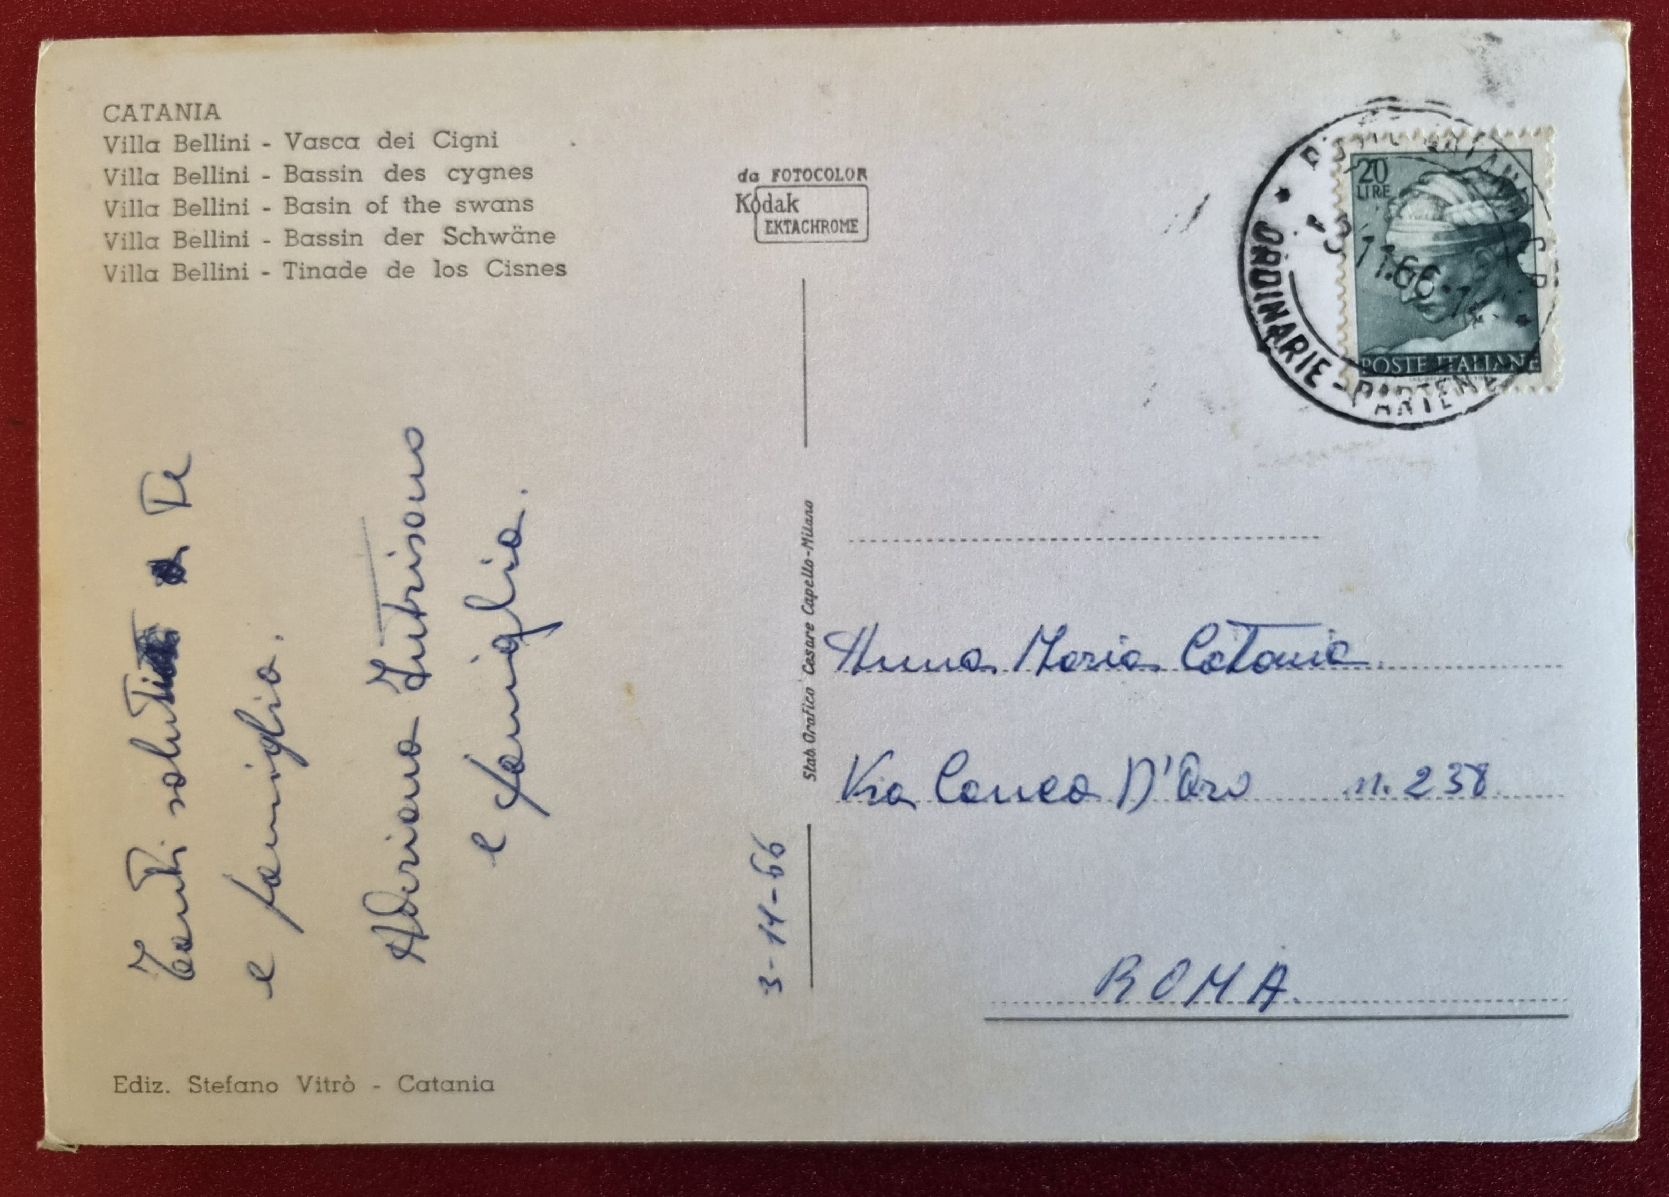 CATANIA
Villa Bellini - Vasca dei Cigni
Villa Bellini - Bassin des cygnes
Villa Bellini - Basin of the swans
Villa Bellini - Bassin der Schwäne
Villa Bellini - Tinade de los Cisnes
da FOTOCOLOR
Kodak
EKTACHROME
20
LIRE
POSTE ITALIANE
ORDINARIE - PARTENZE
3.11.66
Tanti saluti a Te
e famiglia.
Adriana Intrisano
e famiglia.
3-11-66
Stab. Grafico Cesare Capello - Milano
Anna Maria Catania
Via Conca D'Oro n. 238
ROMA
Ediz. Stefano Vitrò - Catania